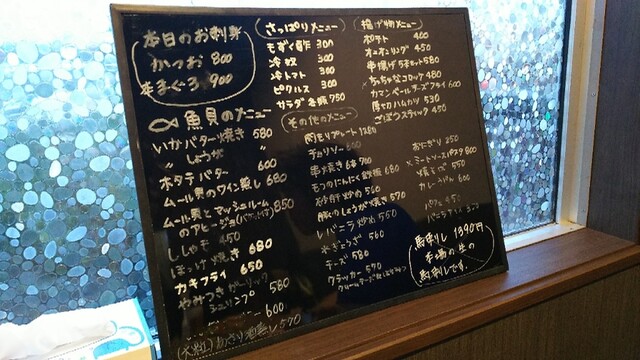 本日のお刺身
かつお 800
本まぐろ 900
魚貝のメニュー
いかバター焼き 580
〃 しょうが 〃
ホタテバター 600
ムール貝のワイン蒸し 680
ムール貝とマッシュルーム
のアヒージョ(バケット付) 850
ししゃも 450
ほっけ焼き 680
カキフライ 650
やみつきガーリック
シュリンプ 580
600
あさり酒蒸し 570
さっぱりメニュー
もずく酢 300
冷奴 300
冷トマト 300
ピクルス 300
サラダ各種 750
その他のメニュー
肉もりプレート 1280
チョリソー 600
串焼き 6本 900
もつのにんにく鉄板 680
砂肝炒め 560
豚のしょうが焼き 570
レバニラ炒め 550
水ぎょうざ 560
チーズ 580
クラッカー 570
揚げ物メニュー
ポテト 400
オニオンリング 450
串揚げ 5本セット 580
×ちっちゃなコロッケ 480
カマンベールチーズフライ 600
厚切ハムカツ 530
ごぼうスティック 450
おにぎり 250
×ミートソースパスタ 800
焼そば 550
カレーうどん 600
パフェ 450
バニラアイス
馬刺し 1390円
本場の生の
馬刺しです。